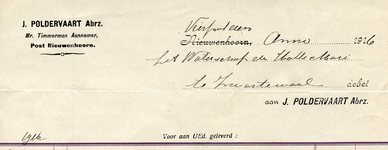 J. POLDERVAART Abrz.
Mr. Timmerman Aannemer,
Post Nieuwenhoorn.
Vierpolders
Nieuwenhoorn, Anno 1916
Het Waterschap de
te Zwartewaal debet
aan J. POLDERVAART Abrz.
Voor aan UEd. geleverd :